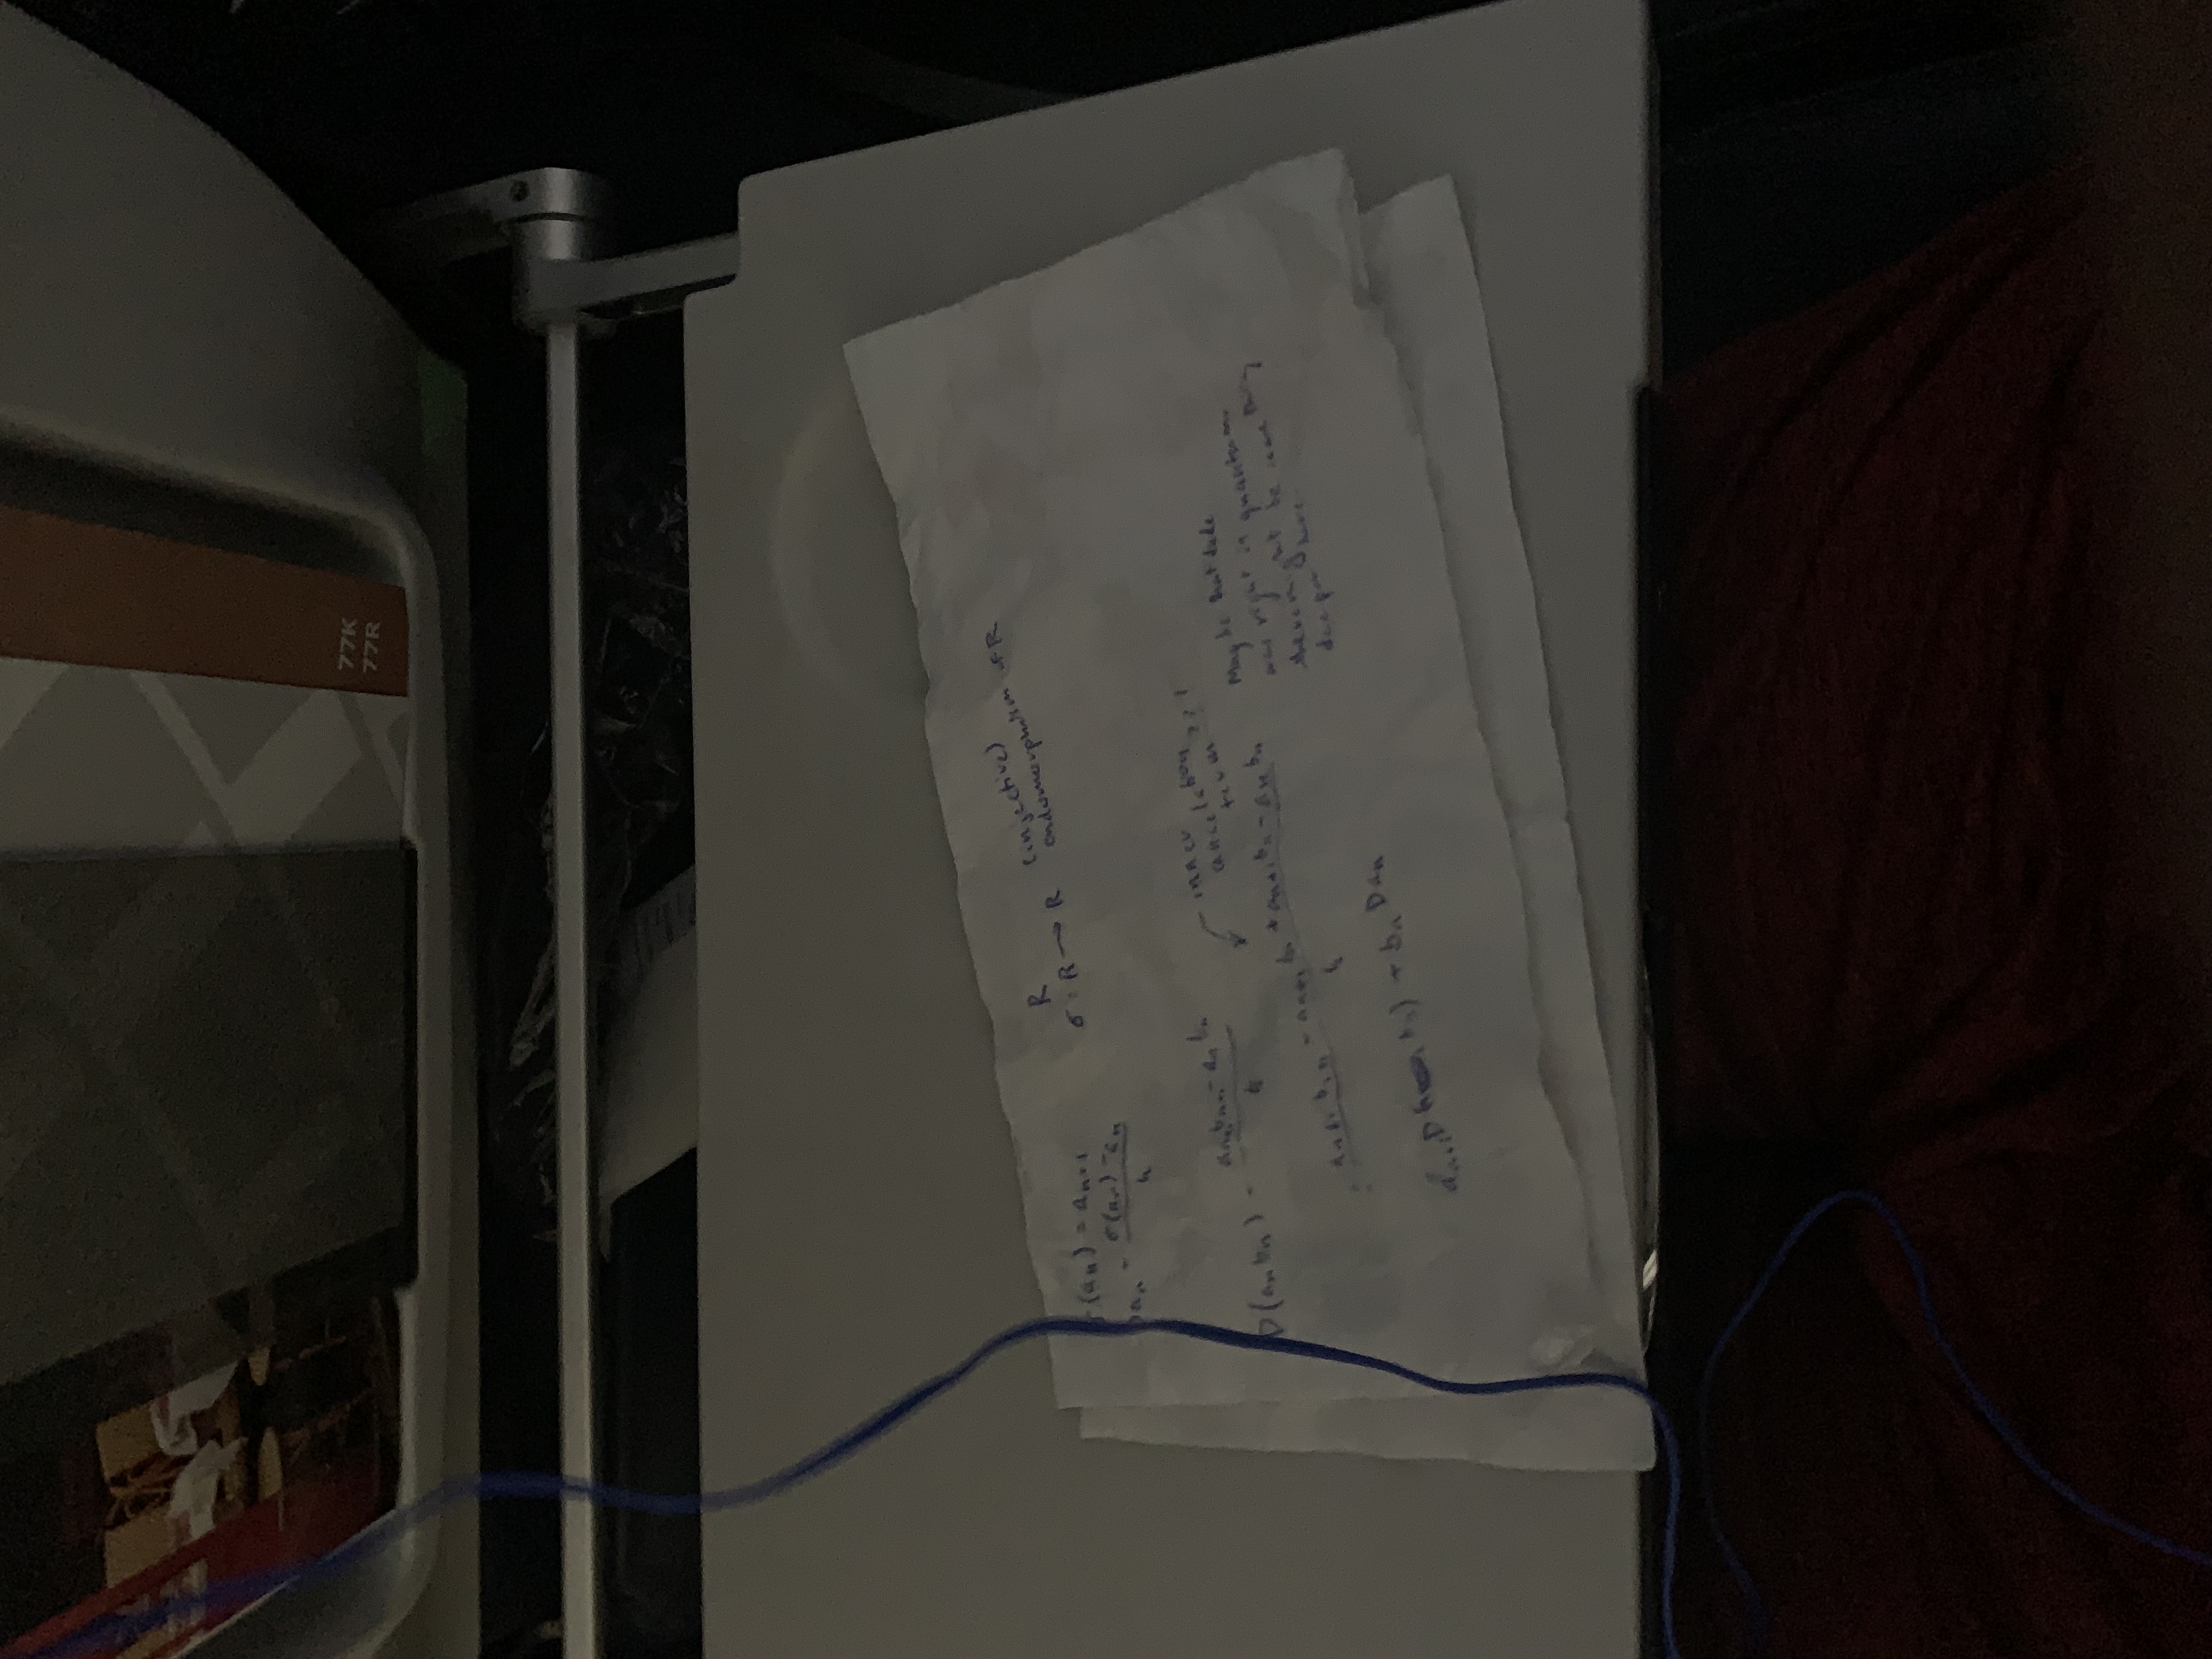 77K
77R
R
σ : R → R (injective)
endomorphism of R
(aₙ) = aₙ₊₁
aₙ = σ(aₙ) - aₙ / h
D(aₙbₙ) = aₙ₊₁bₙ₊₁ - aₙbₙ / h
inner
cancelation
term
= aₙ₊₁bₙ₊₁ - aₙ₊₁bₙ + aₙ₊₁bₙ - aₙbₙ / h
aₙ₊₁D( bₙ) + bₙDaₙ
Maybe that dude
was right in quantum
there might be something
deeper here